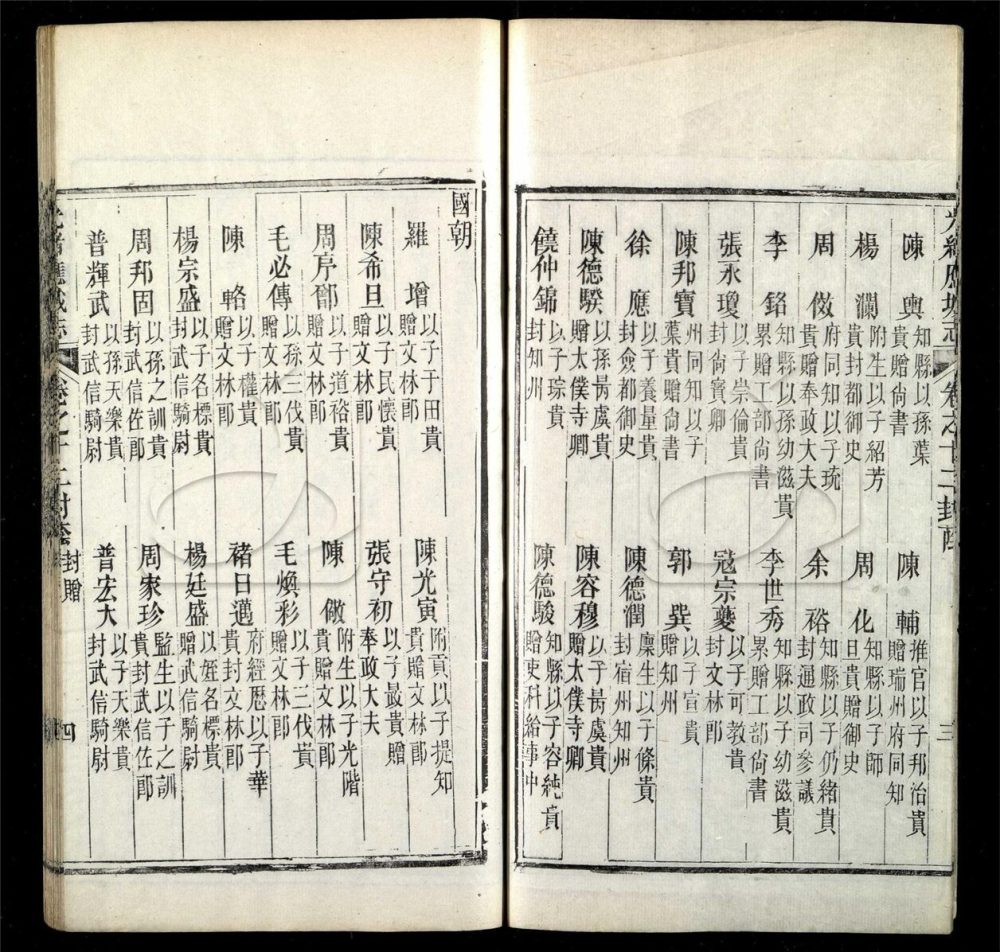 光緒應城志 卷之十二 封廕 三
陳輿 知縣以孫葉貴贈尚書
陳輔 推官以子邦治貴贈瑞州府同知
楊瀾 附生以子紹芳貴封都御史
周化 知縣以子師旦貴贈御史
周倣 府同知以子琉貴贈奉政大夫
余裕 知縣以子仍緒貴封通政司參議
李銘 知縣以孫幼滋貴累贈工部尚書
李世秀 知縣以子幼滋貴累贈工部尚書
張永瓊 以子崇倫貴封尚寶卿
寇宗夔 以子可教貴封文林郎
陳邦寶 州同知以子葉貴贈尚書
郭巽 以子宣貴贈知州
徐應 以子養量貴封僉都御史
陳德潤 廩生以子條貴封宿州知州
陳德騤 以孫昺虞貴贈太僕寺卿
陳容穆 以子昺虞貴贈太僕寺卿
饒仲錦 以子琮貴封知州
陳德駿 知縣以子容純貴贈吏科給事中
國朝
羅增 以子于田貴贈文林郎
陳光寅 附貢以子提知貴贈文林郎
陳希旦 以子民懷貴贈文林郎
張守初 以子最貴贈奉政大夫
周序鄮 以子道裕貴贈文林郎
陳儆 附生以子光階貴贈文林郎
毛必傳 以孫三伐貴贈文林郎
毛煥彩 以子三伐貴贈文林郎
陳輅 以子權貴贈文林郎
褚日邁 府經歷以子華貴封文林郎
楊宗盛 以子名標貴封武信騎尉
楊廷盛 以姪名標貴贈武信騎尉
周邦固 以孫之訓貴封武信佐郎
周家珍 監生以子之訓貴封武信佐郎
普輝武 以孫天樂貴封武信騎尉
普宏大 以子天樂貴封武信騎尉
光緒應城志 卷之十二 封廕 封贈 四